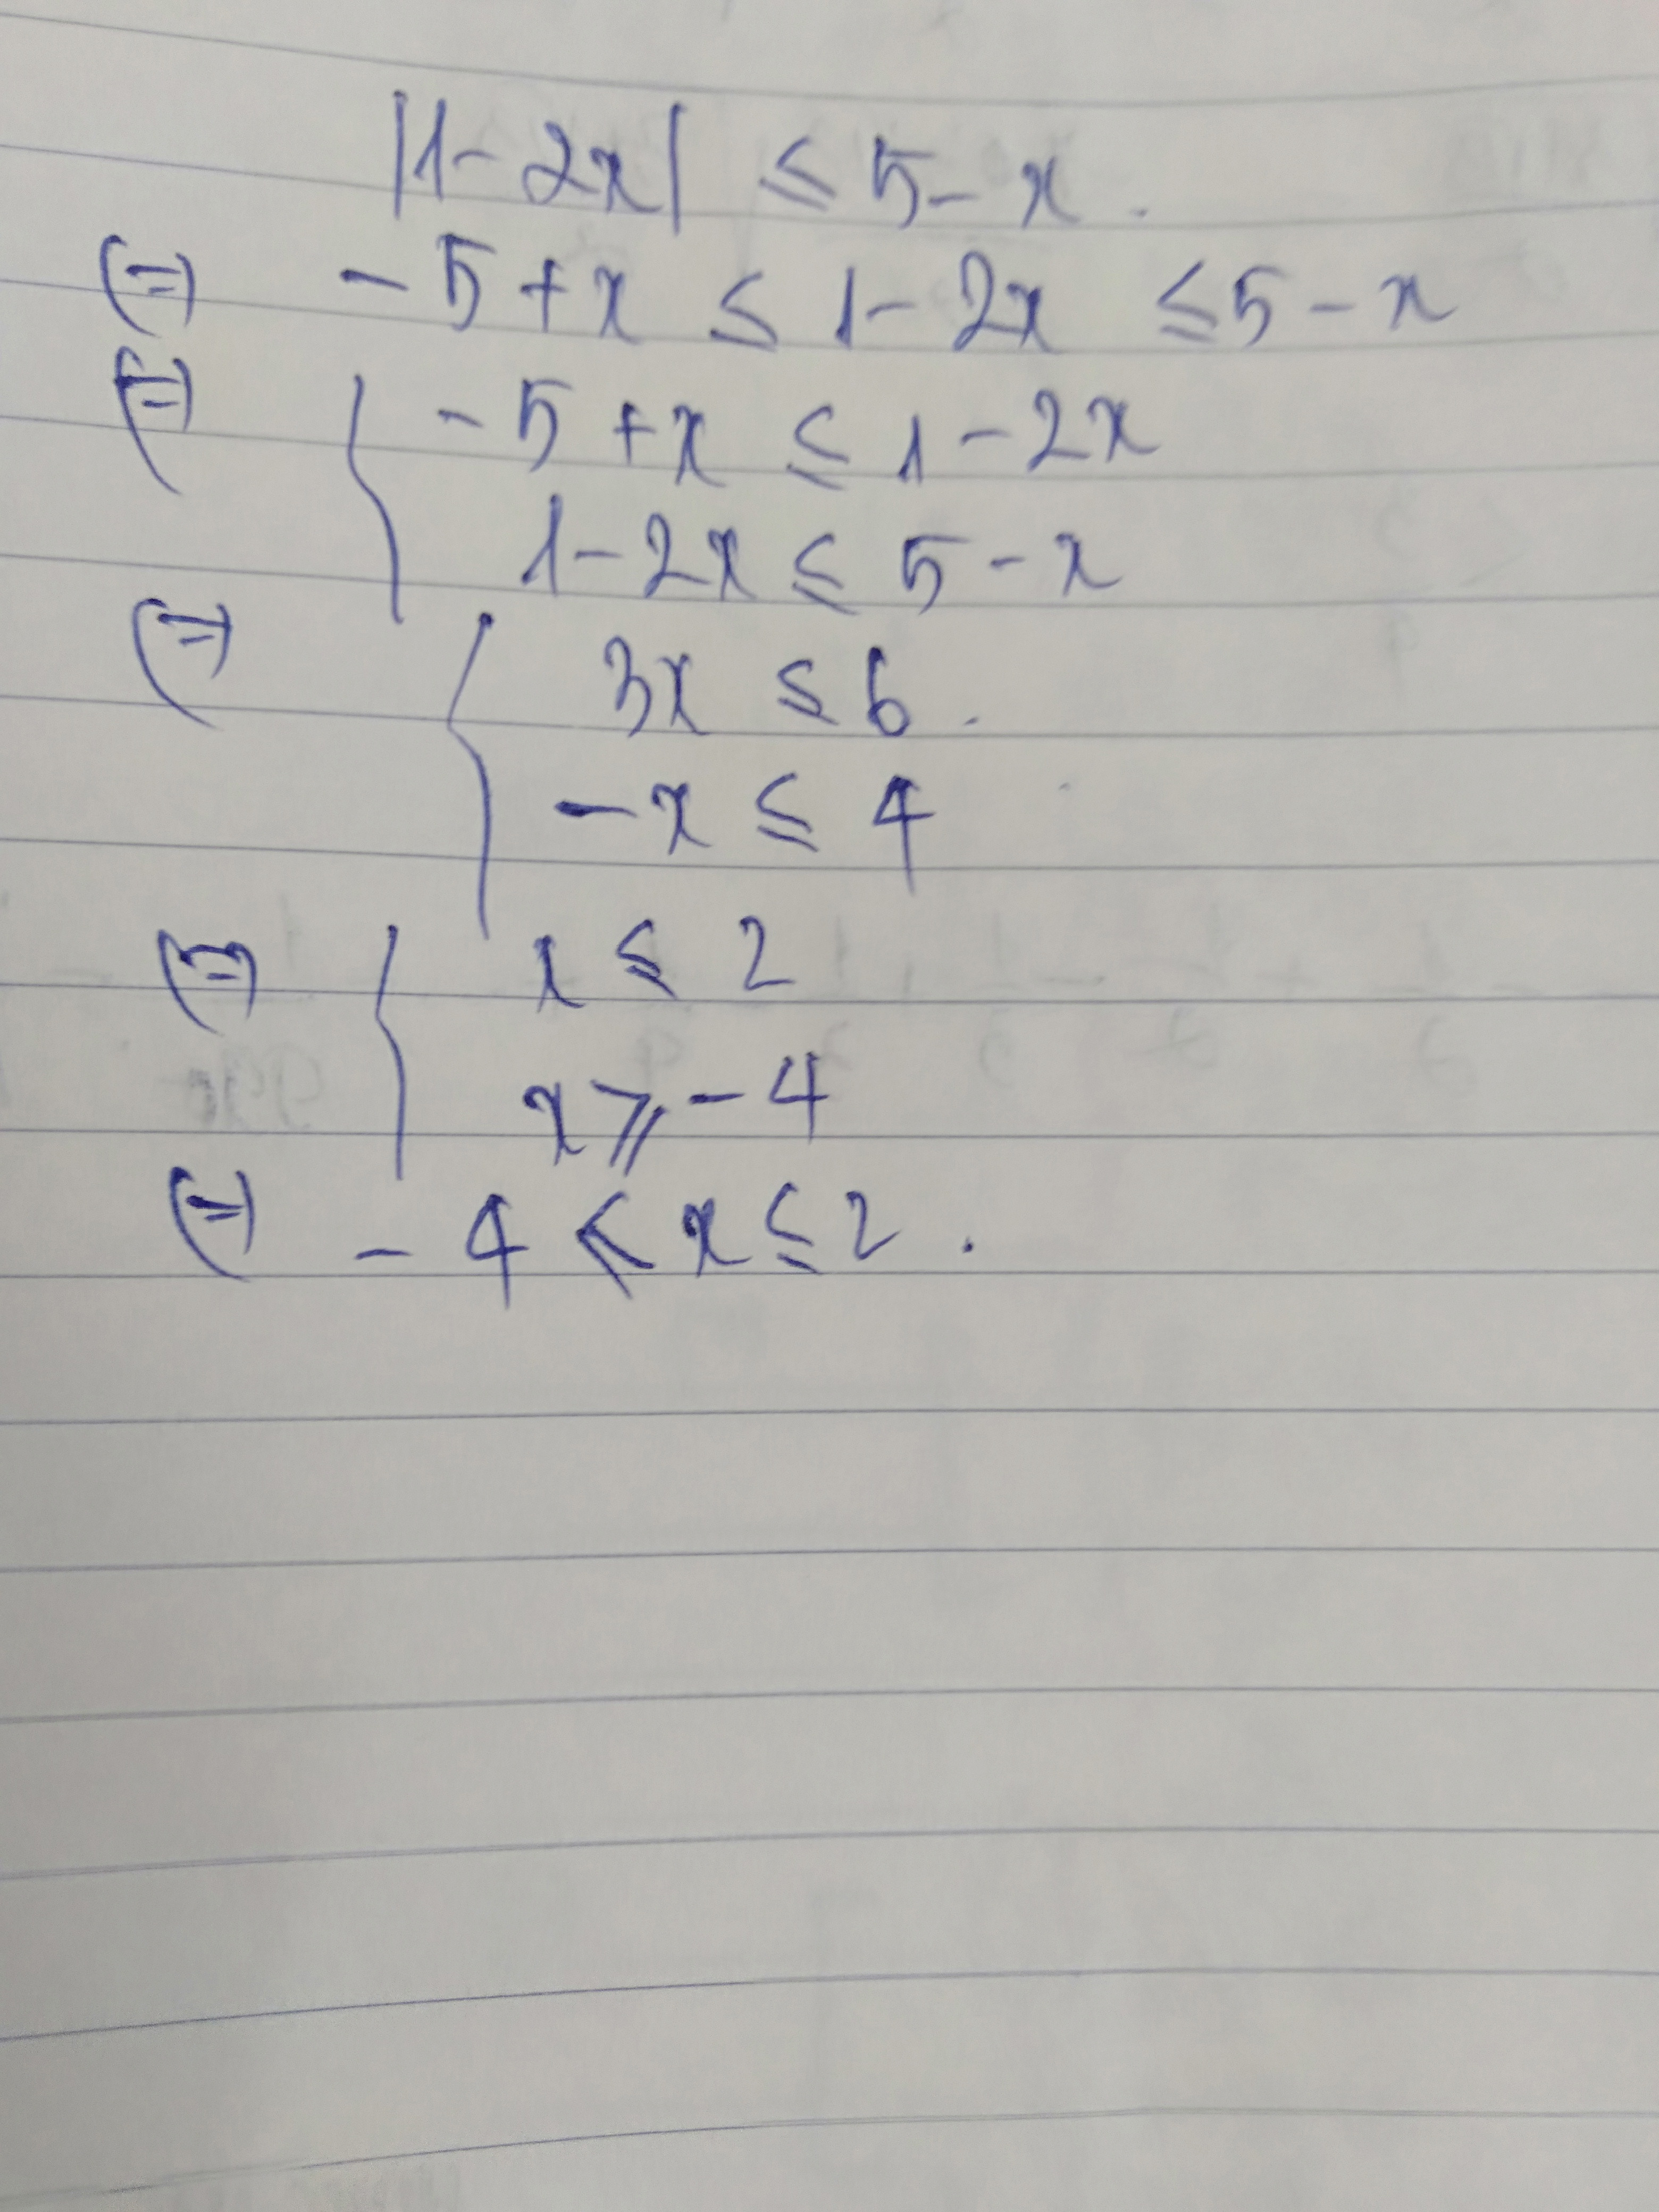 |1-2x| ≤ 5-x.
(=) -5+x ≤ 1-2x ≤ 5-x
(=) { -5+x ≤ 1-2x
1-2x ≤ 5-x
(=) { 3x ≤ 6.
-x ≤ 4
(=) { x ≤ 2
x ⩾ -4
(=) -4 ⩽ x ≤ 2.